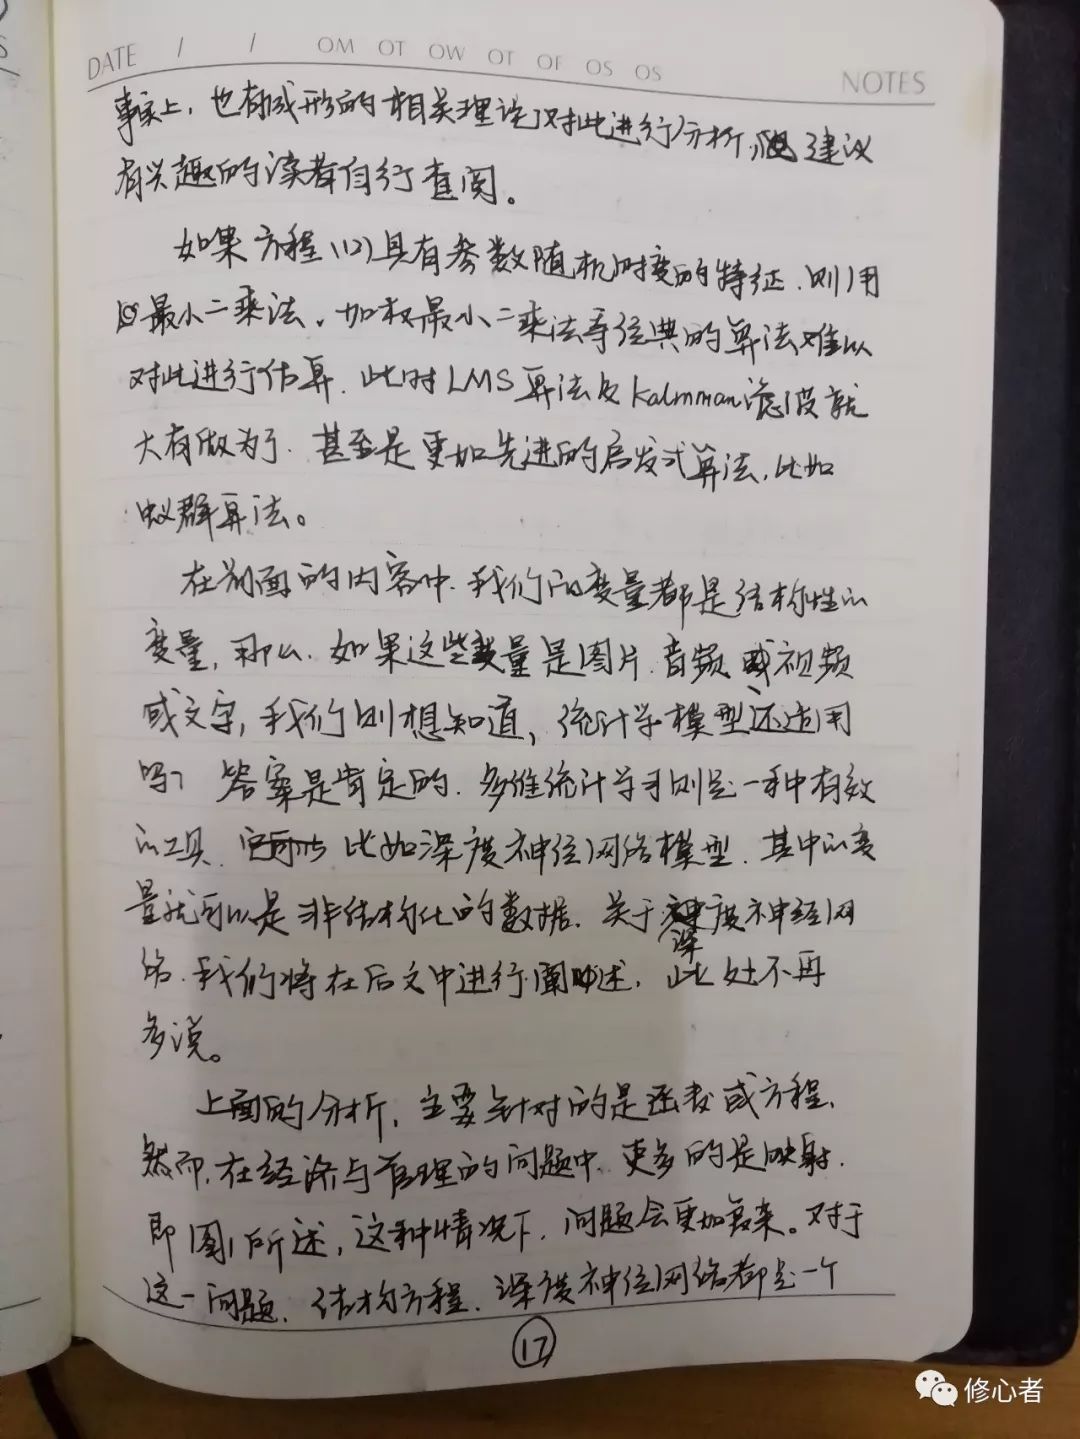 DATE / / OM OT OW OT OF OS OS NOTES
事实上，也有成形的相关理论对此进行分析，建议
有兴趣的读者自行查阅。
如果方程(12)具有参数随机时变的特征，则用
最小二乘法、加权最小二乘法等经典的算法难以
对此进行估算，此时LMS算法及Kalmman滤波就
大有做为了，甚至是更加先进的启发式算法，比如
蚁群算法。
在前面的内容中，我们的变量都是结构性的
变量，那么，如果这些变量是图片、音频或视频
或文字，我们则想知道，统计学模型还适用
吗？答案是肯定的，多维统计学则是一种有效
的工具，比如深度神经网络模型，其中的变
量就可以是非结构化的数据，关于深度神经网
络，我们将在后文中进行阐述，此处不再
多说。
上面的分析，主要针对的是函数或方程，
然而，在经济与管理的问题中，更多的是映射，
即图1所述，这种情况下，问题会更加复杂。对于
这一问题，结构方程、深度神经网络都是一个
17
修心者